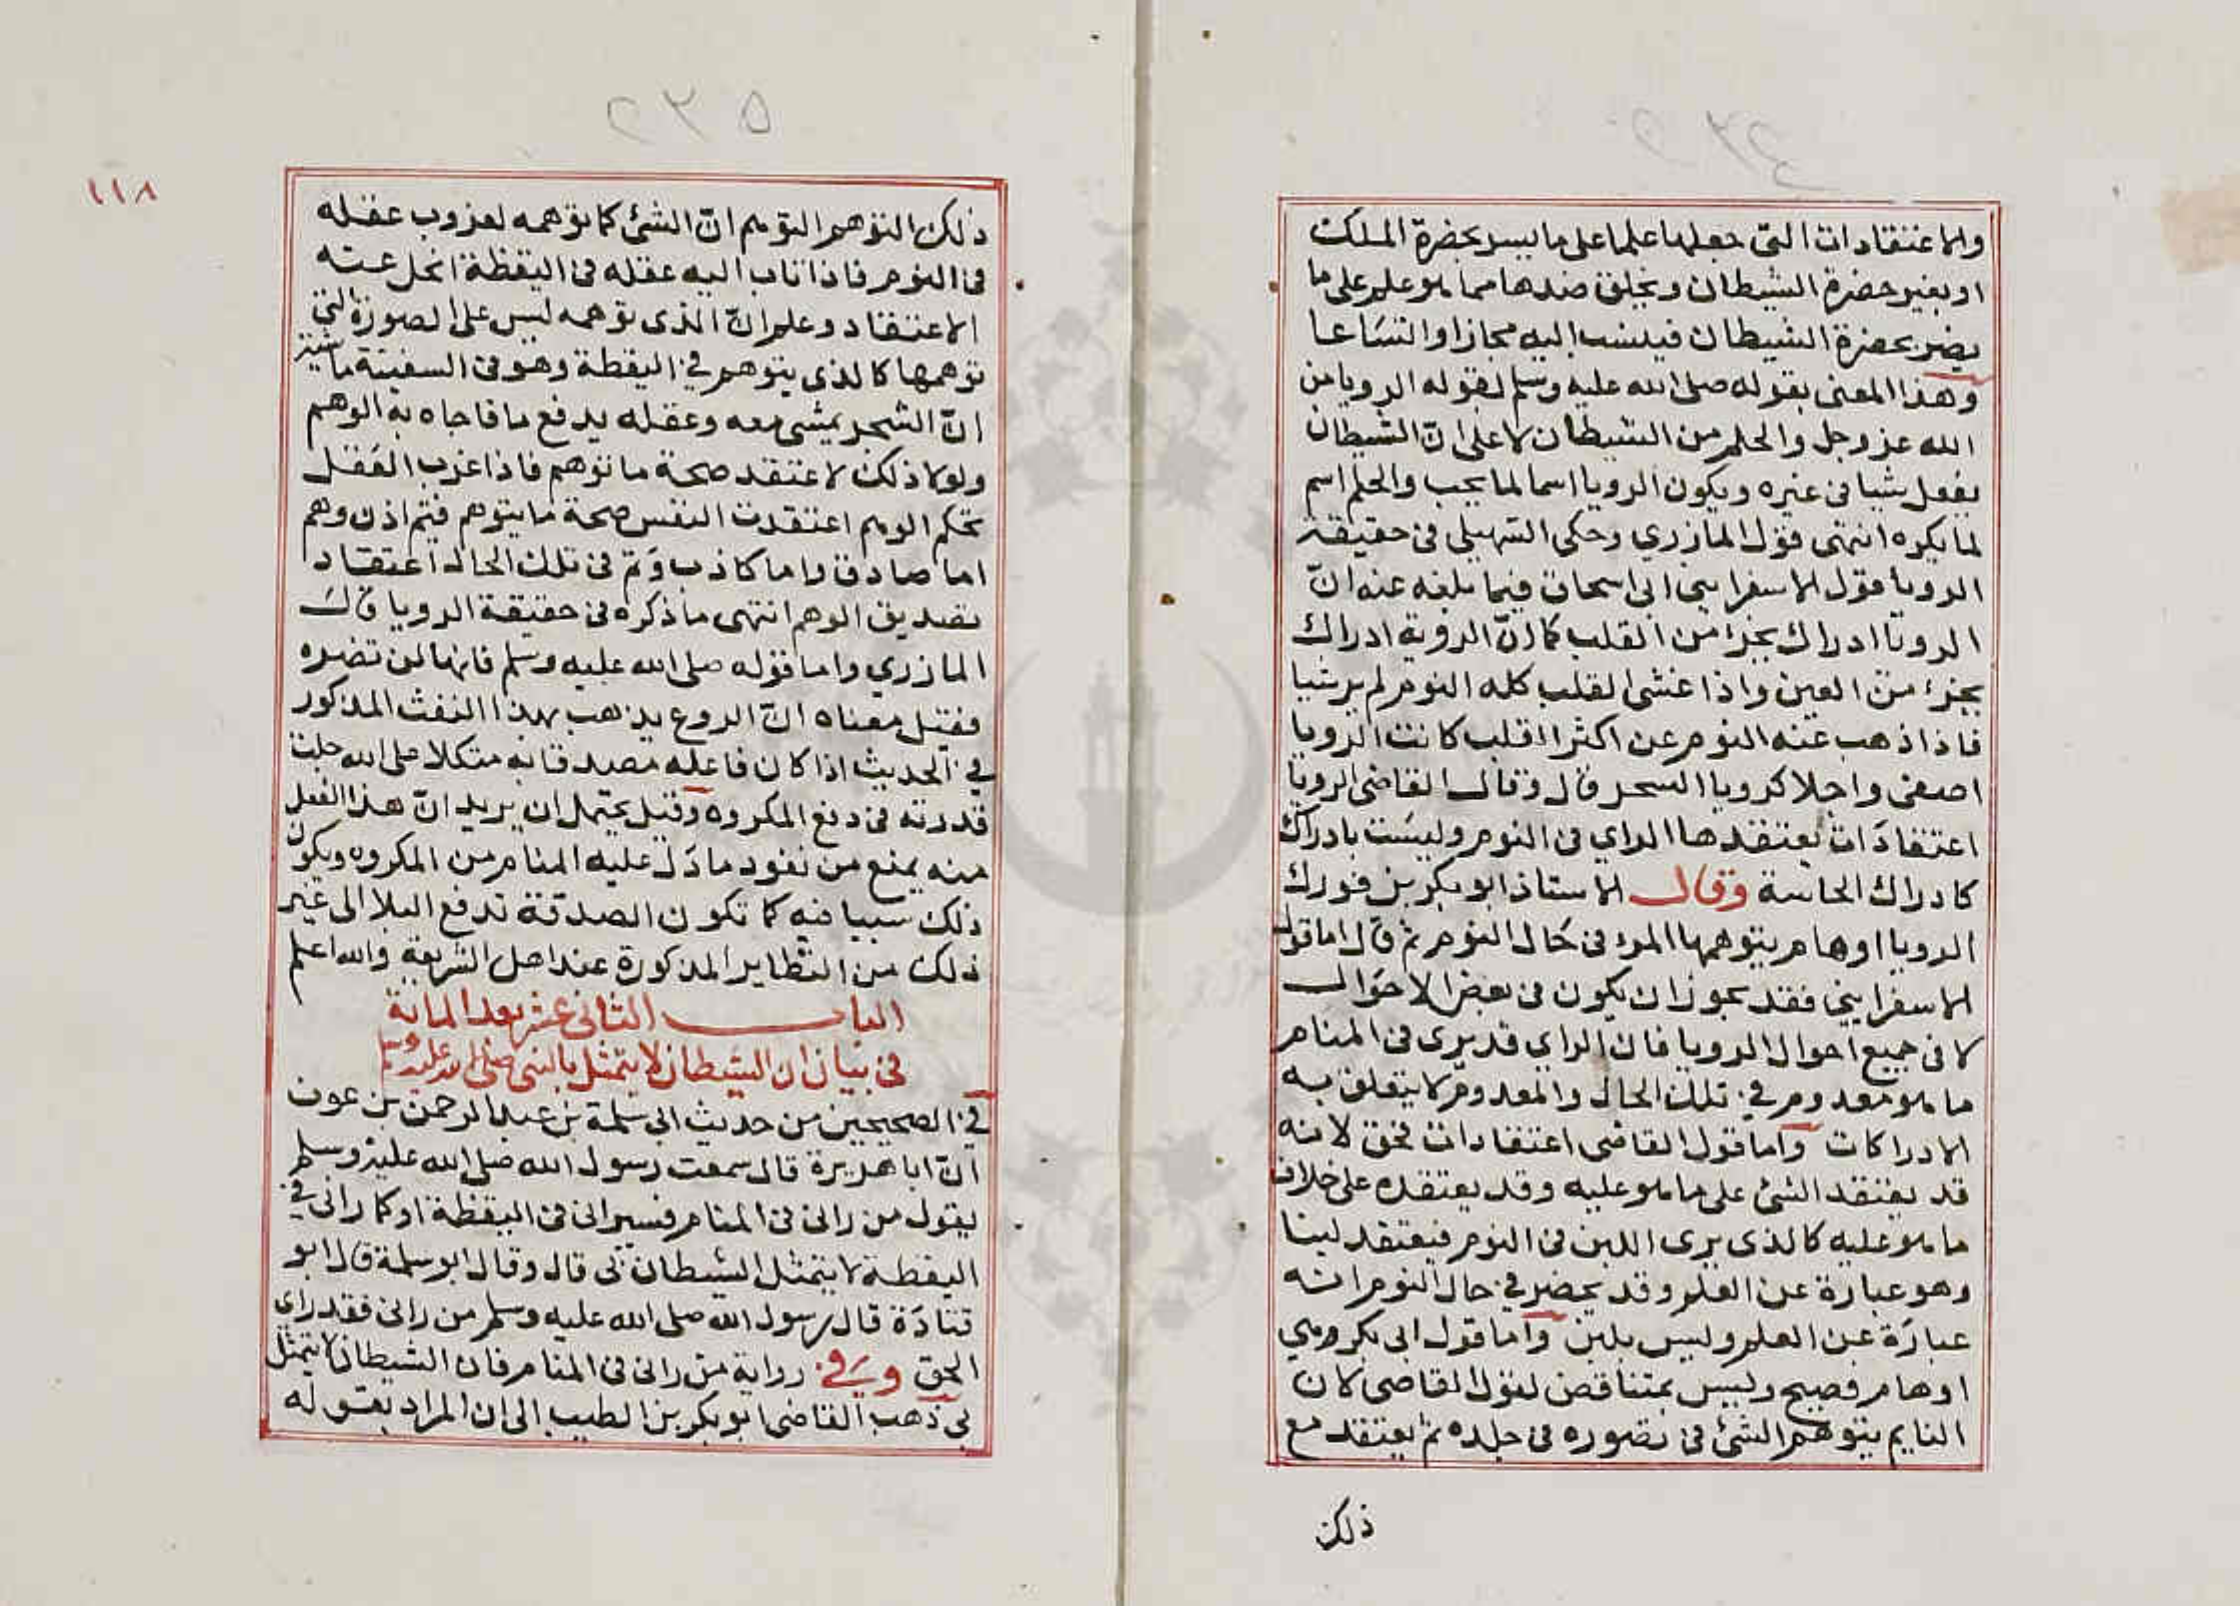 ٢٣٤
والاعتقادات التى جعلها علما على ما يسر بحضرة الملك
او بغير حضرة الشيطان ويخلق ضدها مما هو علم على ما
يضر بحضرة الشيطان فينسب اليه مجازا واتساعا
وهذا المعنى بقوله صلى الله عليه وسلم لقوله الرويا من
الله عز وجل والحلم من الشيطان لا على انّ الشيطان
يفعل شيا فى غيره ويكون الرويا اسما لما يحب والحلم اسم
لما يكره انتهى قول المازري وحكى السهيلى فى حقيقة
الرويا قول الاسفراينى ابى اسحاق فيما بلغه عنه انّ
الرويا ادراك بجزء من القلب كما انّ الروية ادراك
بجزء من العين واذا غشى القلب كله النوم لم ير شيا
فاذا ذهب عنه النوم عن اكثر القلب كانت الرويا
اصفى واجلا كرويا السحر قال وقال القاضى الرويا
اعتقادات يعتقدها الراي فى النوم وليست بادراك
كادراك الحاسة وقال الاستاذ ابو بكر بن فورك
الرويا اوهام يتوهمها المرء فى حال النوم ثم قال اما قول
الاسفراينى فقد يجوز ان يكون فى بعض الاحوال
لا فى جميع احوال الرويا فان الراي قد يرى فى المنام
ما هو معدوم فى تلك الحال والمعدوم لا يتعلق به
الادراكات واما قول القاضى اعتقادات فحق لانه
قد يعتقد الشئ على ما هو عليه وقد يعتقده على خلاف
ما هو عليه كالذى يرى اللبن فى النوم فيعتقد لبنا
وهو عبارة عن العلم وقد يحضر فى حال النوم انه
عبارة عن العلم وليس بلبن واما قول ابى بكر وهي
اوهام فصيح وليس بمتناقض لقول القاضى لان
النايم يتوهم الشئ فى تصوره فى خلده ثم يعتقد مع
ذلك
٢٣٥
١١٨
ذلك التوهم التوهم انّ الشئ كما توهمه لعزوب عقله
فى النوم فاذا تاب اليه عقله فى اليقظة انحل عنه
الاعتقاد وعلم انّ الذى توهمه ليس على الصورة التى
توهمها كالذى يتوهم فى اليقظة وهو فى السفينة ماشية
انّ الشجر يمشى معه وعقله يدفع ما فاجاه به الوهم
ولولا ذلك لاعتقد صحة ما توهم فاذا عزب العقل
تحكم الوهم اعتقدت النفس صحة ما يتوهم فثم اذن وهم
اما صادق واما كاذب وثم فى تلك الحال اعتقاد
تصديق الوهم انتهى ما ذكره فى حقيقة الرويا قال
المازري واما قوله صلى الله عليه وسلم فانها لن تضره
فقيل معناه انّ الروع يذهب بهذا النفث المذكور
فى الحديث اذا كان فاعله مصدقا به متكلا على الله جلت
قدرته فى دفع المكروه وقيل يحتمل ان يريد انّ هذا الفعل
منه يمنع من نفود ما دل عليه المنام من المكروه ويكون
ذلك سببا فيه كما تكون الصدقة تدفع البلا الى غير
ذلك من النظاير المذكورة عند اهل الشريعة والله اعلم
الباب الثانى عشر بعد الماية
فى بيان ان الشيطان لا يتمثل بالنبى صلى الله عليه وسلم
فى الصحيحين من حديث ابى سلمة بن عبد الرحمن بن عوف
انّ ابا هريرة قال سمعت رسول الله صلى الله عليه وسلم
يقول من رانى فى المنام فسيرانى فى اليقظة او كما رانى فى
اليقظة لا يتمثل الشيطان بى قال وقال ابو سلمة قال ابو
قتادة قال رسول الله صلى الله عليه وسلم من رانى فقد راى
الحق وفى رواية من رانى فى المنام فان الشيطان لا يتمثل
بى ذهب القاضى ابو بكر بن الطيب الى ان المراد بقوله